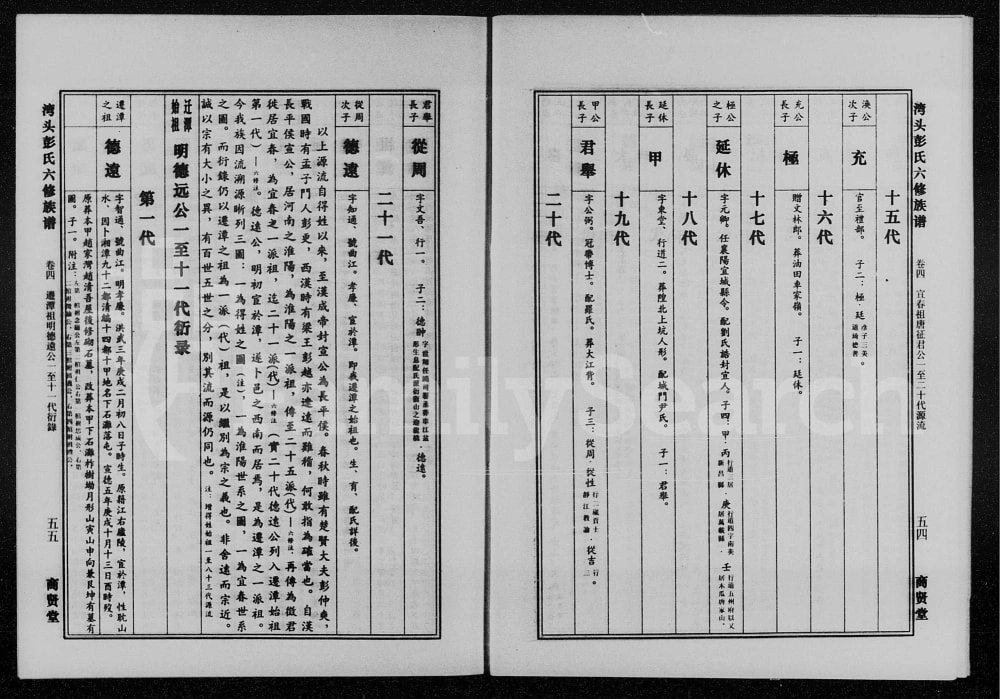 湾头彭氏六修族谱
卷四　宜春祖唐征君公一至二十代源流
五四
商贤堂
十五代
渙公次子
充
官至禮部。　子二：極·廷
十六代
充公長子
極
贈文林郎。葬油田車家嶺。　子一：延休。
十七代
極公之子
延休
字元卿。任襄陽宜城縣令。配劉氏誥封宜人。子四：甲·丙·庚·壬
十八代
延休長子
甲
字東堂、行道二。葬陞北上坑人形。配城門尹氏。　子一：君舉。
十九代
甲公長子
君舉
字公弼。冠帶博士。配羅氏。葬大江背。　子三：從周·從性·從吉
二十代
君舉長子
從周
字文吾、行一。　子二：德翀·德遠。
二十一代
從周次子
德遠
字知通、號曲江。孝廉、宦於潭。即我遷潭之始祖也。生、育、配氏詳後。
以上源流自得姓以來，至漢成帝封宣公為長平侯。春秋時雖有楚賢大夫彭仲爽，
戰國時有孟子門人彭更，西漢時有梁王彭越亦遼遠而難稽，何敢指為確當也。自漢
長平侯宣公，居河南之淮陽，為淮陽之一派祖，傳至二十五派(代)—六修注，再傳為徵君
徙居宜春，為宜春之一派祖，迄二十一派(代)—六修注（實二十代德遠公列入遷潭始祖
第一代）—六修注。德遠公，明初宦於潭，遂卜邑之西南而居焉，是為遷潭之一派祖。
今我族因流溯源晰列三图：一為得姓之圖（注），一為淮陽世系之圖，一為宜春世系
之圖。而衍錄仍以遷潭之祖為一派（代）祖，是以繼別為宗之義也。非舍遠而宗近。
誠以宗有大小之異，有百世五世之分，別其流而源仍同也。注：增得姓始祖一至八十三代源流
迁潭始祖　明德远公一至十一代衍录
第一代
遷潭之祖
德遠
字智通、號曲江。明孝廉。洪武三年庚戌二月初八日子時生。原籍江右廬陵，宦於潭，性耽山
水，因卜湘潭九十二都清編十四都十甲地名下石灘落屯。宣德五年庚戌十月十三日酉時歿。
原葬本甲趙家灣趙清吾屋後修砌石墓，改葬本甲下石灘柞樹坳月形山寅山申向兼艮坤有墓有
圖。子一。　附注：
湾头彭氏六修族谱
卷四　遷潭祖明德遠公一至十一代衍錄
五五
商贤堂